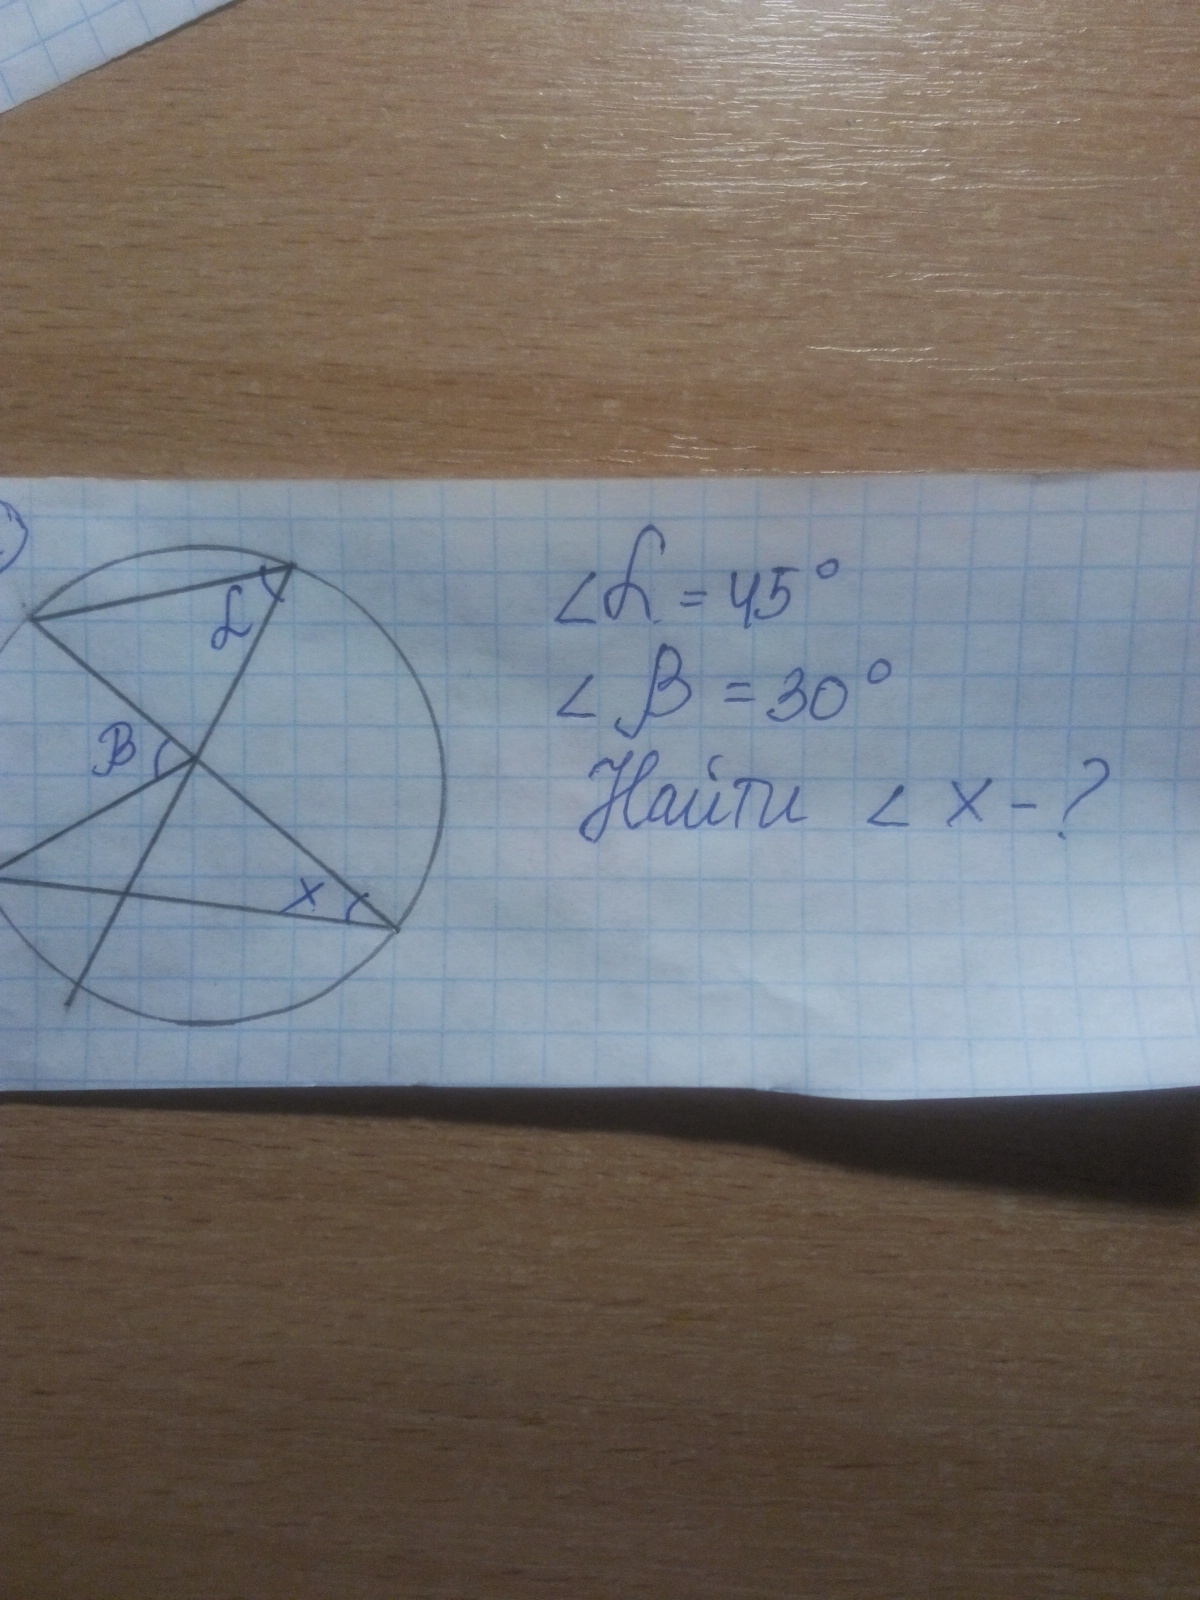 α
β
x
∠α = 45°
∠β = 30°
Найти ∠x - ?